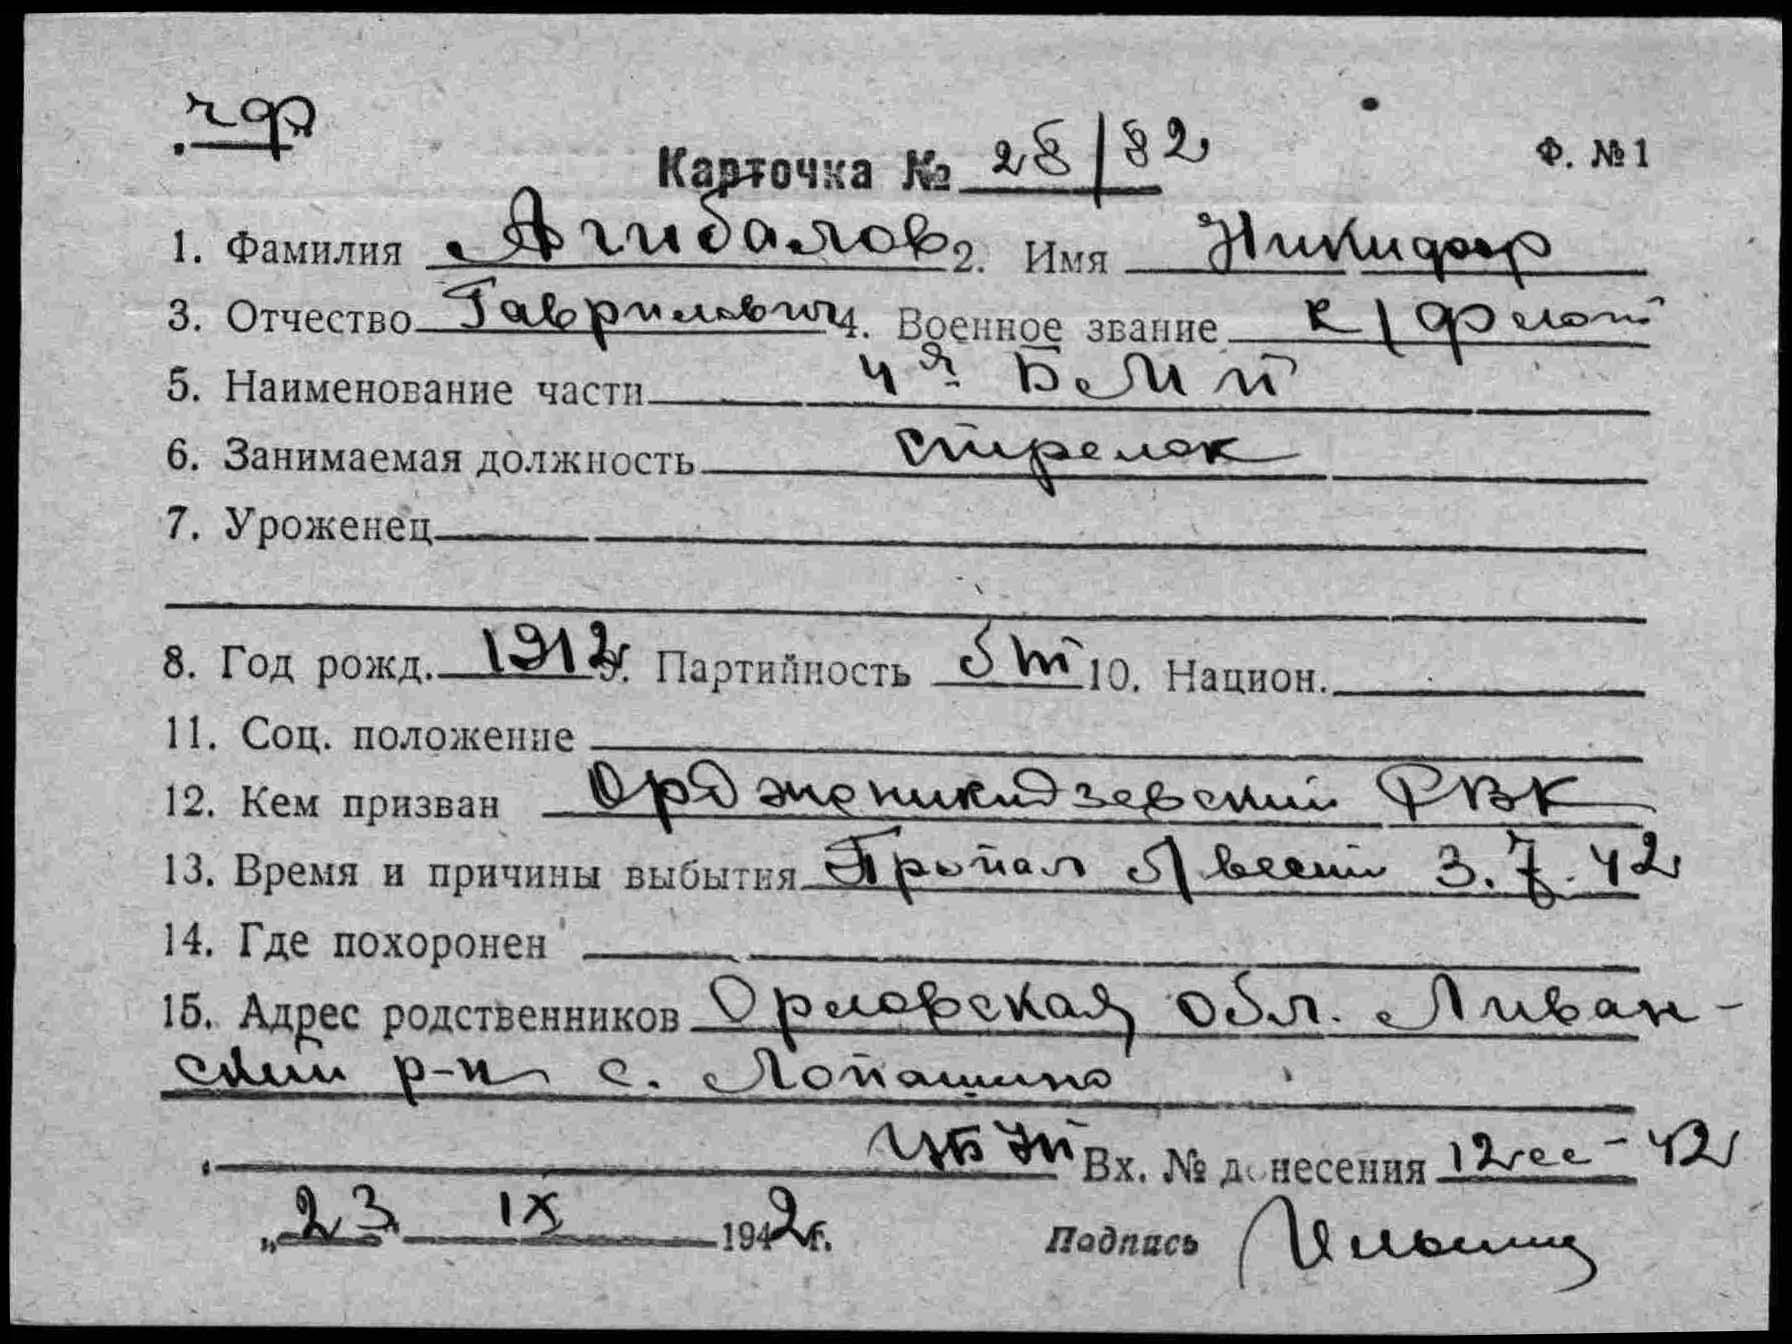 ч ф
Карточка № 28/82 Ф. № 1
1. Фамилия Агибалов 2. Имя Никифор
3. Отчество Гаврилович 4. Военное звание к/флот
5. Наименование части ч я БМП
6. Занимаемая должность стрелок
7. Уроженец
8. Год рожд. 1912 9. Партийность б/п 10. Национ.
11. Соц. положение
12. Кем призван Орджоникидзевский РВК
13. Время и причины выбытия Пропал б/вести 3.7.42
14. Где похоронен
15. Адрес родственников Орловская обл. Ливан-
ский р-н с. Лопашино
Вх. № донесения 12сс-42
„23 IX 1942г. Подпись Ильин